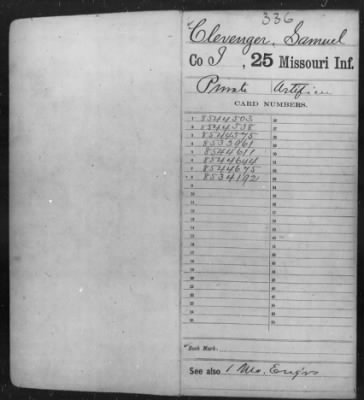 336
Clevenger, Samuel
Co I, 25 Missouri Inf.
Private Artificer
CARD NUMBERS.
1 8544503
2 8544538
3 8544575
4 8533961
5 8544611
6 8544644
7 8544675
8 8534192
Book Mark:
See also 1 Mo. Eng'rs